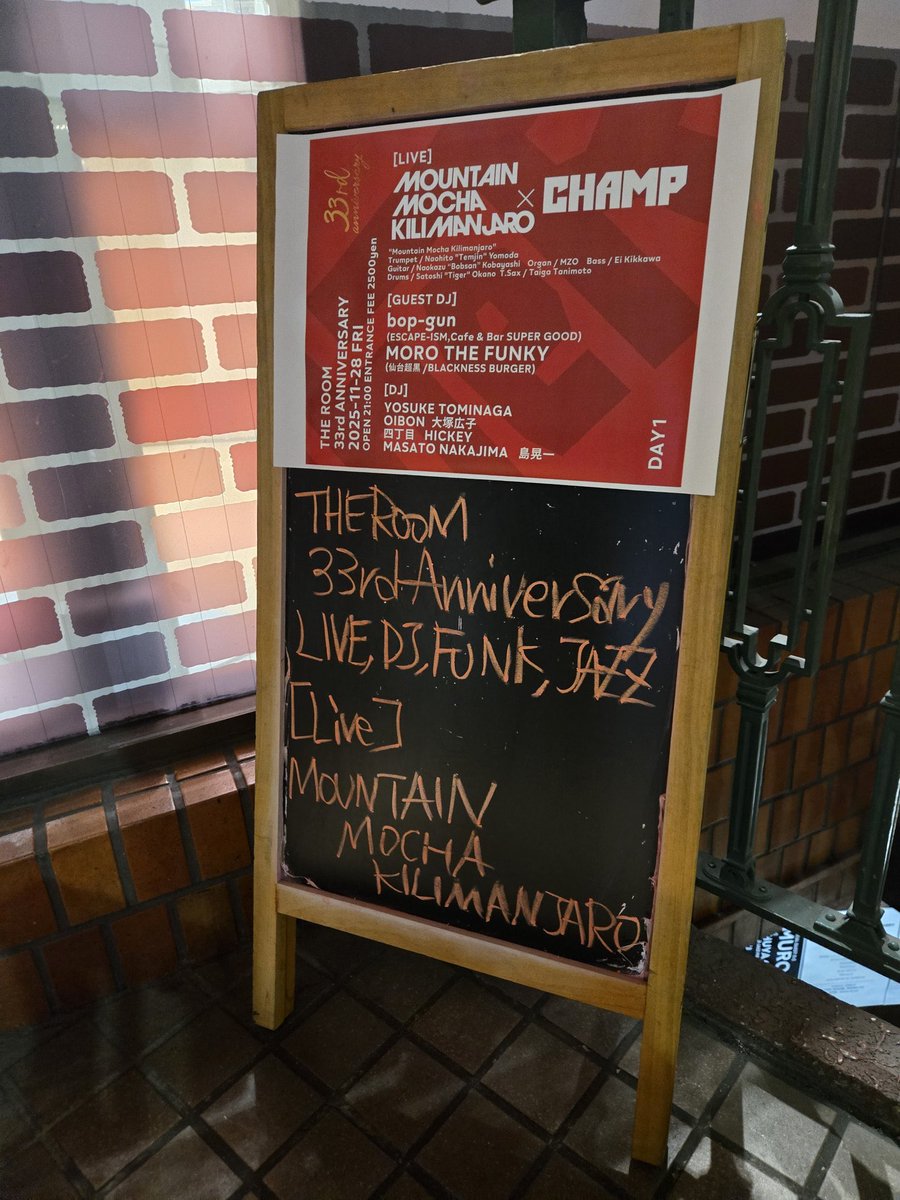 33rd
anniversary
THE ROOM
33rd ANNIVERSARY
2025-11-28 FRI
OPEN 21:00 ENTRANCE FEE 2500yen
[LIVE]
MOUNTAIN
MOCHA
KILIMANJARO
×
CHAMP
"Mountain Mocha Kilimanjaro"
Trumpet / Naohito "Temjin" Yomoda
Guitar / Naokazu "Bobsan" Kobayashi Organ / MZO Bass / Ei Kikkawa
Drums / Satoshi "Tiger" Okano T.Sax / Taiga Tanimoto
[GUEST DJ]
bop-gun
(ESCAPE-ISM,Cafe & Bar SUPER GOOD)
MORO THE FUNKY
(仙台超黒 /BLACKNESS BURGER)
[DJ]
YOSUKE TOMINAGA
OIBON 大塚広子
四丁目 HICKEY
MASATO NAKAJIMA 島晃一
DAY1
THE ROOM
33rd Anniversary
LIVE, DJ, FUNK, JAZZ
[Live]
MOUNTAIN
MOCHA
KILIMANJARO
MURO